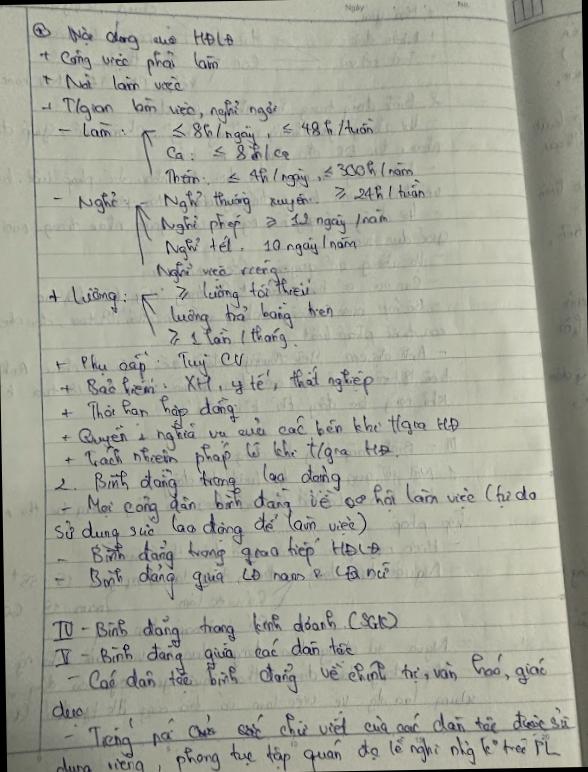 Ngày No.
* Nội dung của HĐLĐ
+ Công việc phải làm
+ Nơi làm việc
+ T/gian làm việc, nghỉ ngơi
- Làm: ≤ 8h/ngày, ≤ 48h/tuần
Ca: ≤ 8h/ca
Thêm: ≤ 4h/ngày, ≤ 300h/năm
- Nghỉ: - Nghỉ thường xuyên: ≥ 24h/tuần
Nghỉ phép ≥ 12 ngày/năm
Nghỉ tết: 10 ngày/năm
Nghỉ việc riêng
+ Lương: ≥ lương tối thiểu
lương trả bằng tiền
≥ 1 lần/tháng
+ Phụ cấp: Tuỳ CV
+ Bảo hiểm: XH, y tế, thất nghiệp
+ Thời hạn hợp đồng
+ Quyền + nghĩa vụ của các bên khi t/gia HĐ
+ Trách nhiệm pháp lí khi t/gia HĐ.
2. Bình đẳng trong lao động
- Mọi công dân bình đẳng về cơ hội làm việc (tự do
sử dụng sức lao động để làm việc)
- Bình đẳng trong giao tiếp HĐLĐ
- Bình đẳng giữa LĐ nam & LĐ nữ
IV - Bình đẳng trong kinh doanh (SGK)
V - Bình đẳng giữa các dân tộc
- Các dân tộc bình đẳng về chính trị, văn hoá, giáo
dục
- Tiếng nói chữ viết của các dân tộc được sử
dụng riêng, phong tục tập quán đa lễ nghi nhg k trái PL